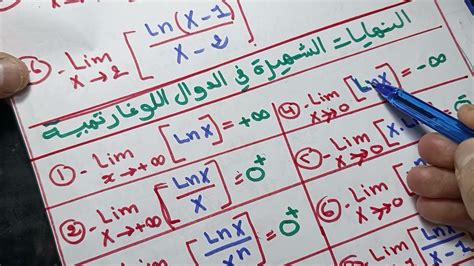 ⑥ - Lim x→2 [Ln(x-1) / x-2]
النهايات الشهيرة في الدوال اللوغاريتمية
① - Lim x→+∞ [Lnx] = +∞
④ - Lim x→0 [Lnx] = -∞
② - Lim x→+∞ [Lnx / x] = 0⁺
⑤ - Lim x→0 [x.
- Lim [Lnx / xⁿ] = 0⁺
⑥ - Lim x→0